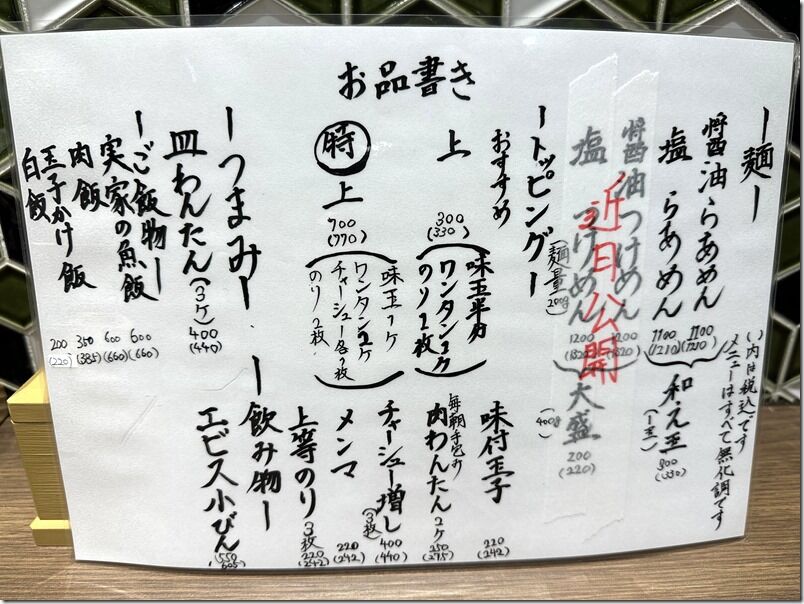 お品書き
ー麺ー
（）内は税込です
メニューはすべて無化調です
醤油らあめん 1100 (1210)
塩 らあめん 1100 (1210)
和え玉 (1玉) 300 (330)
醤油つけめん 1200 (1320)
塩 つけめん 1200 (1320)
(麺量200g)
大盛 (400g) 200 (220)
近日公開
ートッピングー
おすすめ
上 300 (330)
味玉半分
ワンタン1ケ
のり2枚
特上 700 (770)
味玉1ケ
ワンタン2ケ
チャーシュー各1枚
のり2枚
味付玉子 220 (242)
毎朝手包み
肉わんたん 2ケ 250 (275)
チャーシュー増し (3枚) 400 (440)
メンマ 220 (242)
上等のり 3枚 220 (242)
ーつまみー
皿わんたん (3ケ) 400 (440)
ー飲み物ー
エビス小びん 550 (605)
ーご飯物ー
実家の魚飯 600 (660)
肉飯 600 (660)
玉子かけ飯 350 (385)
白飯 200 (220)